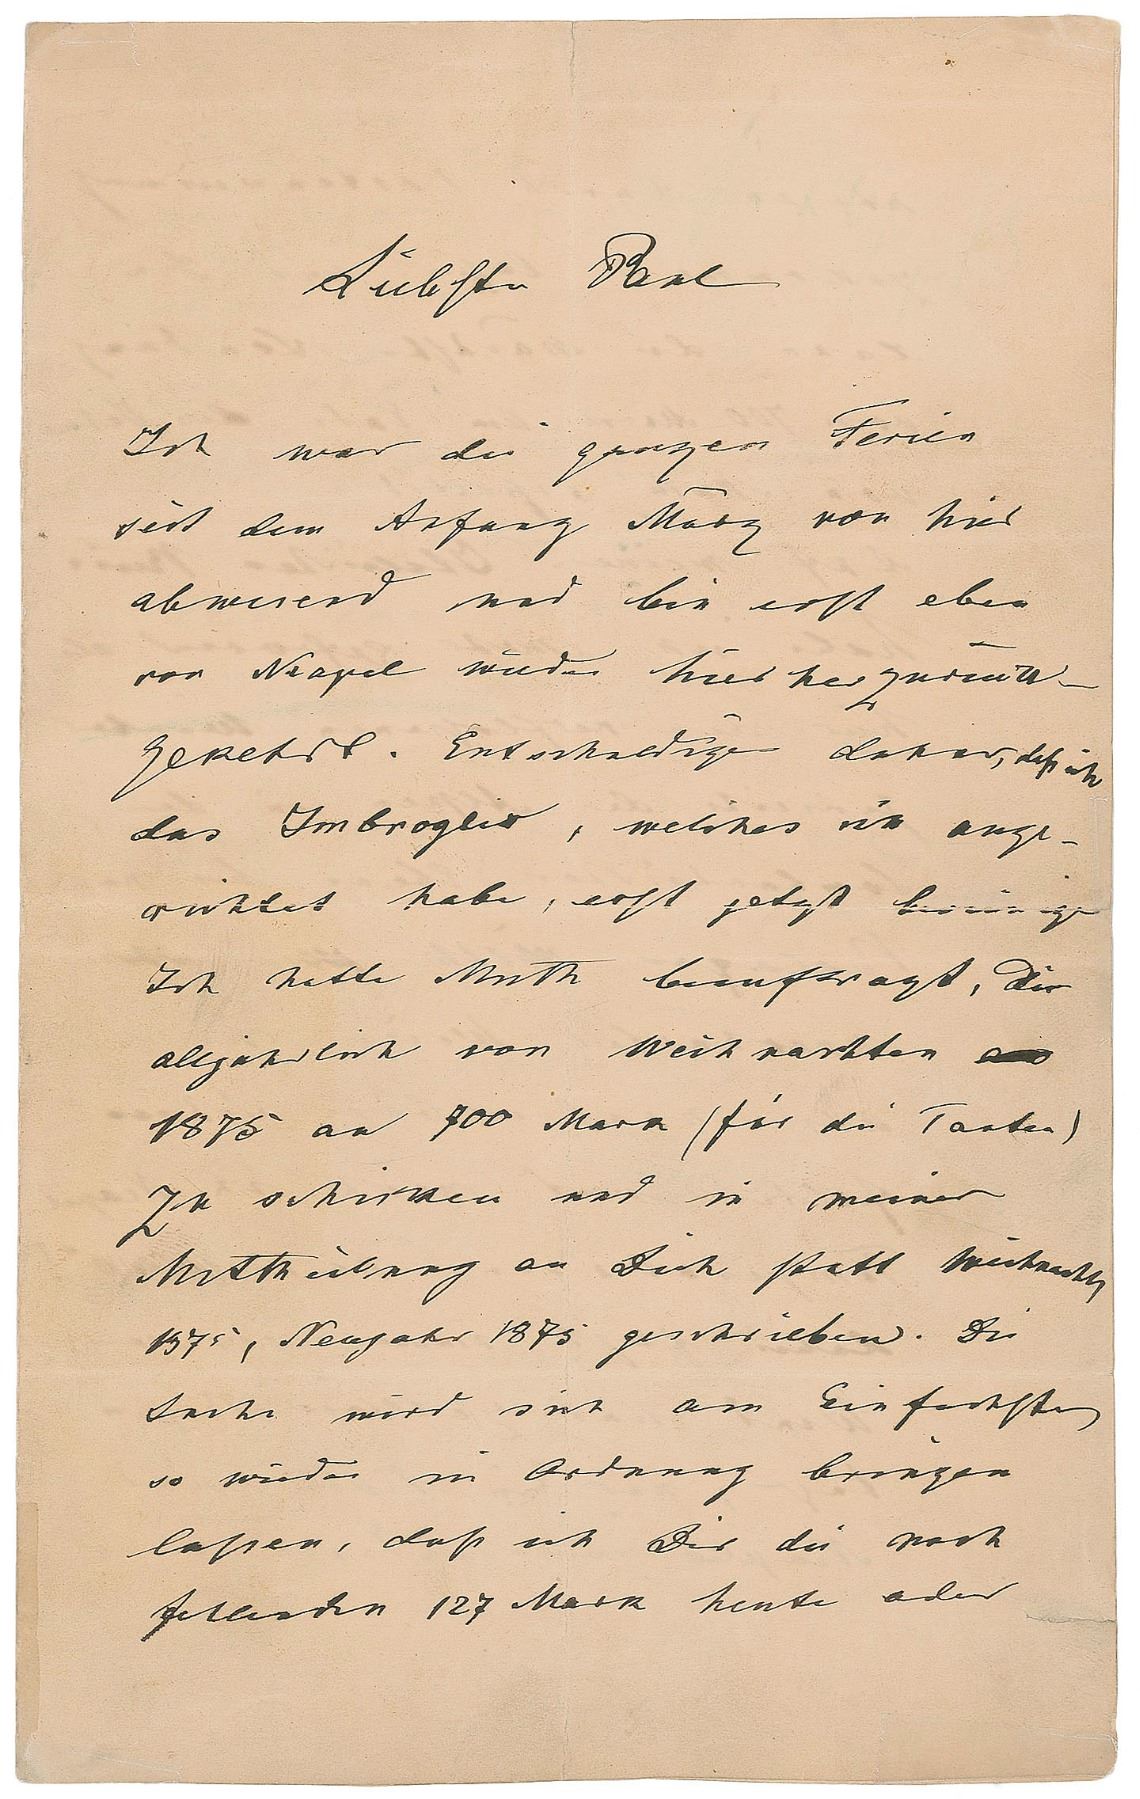 Liebster Paul
Ich war die ganzen Ferien
seit dem Anfang März von hier
abwesend und bin erst eben
von Neapel wieder hierher zurück-
gekehrt. Entschuldige daher, daß ich
das Imbroglio, welches ich ange-
richtet habe, erst jetzt bereinige
Ich hatte Muth beauftragt, Dir
alljährlich von Weihnachten
1875 an 700 Mark (für die Tanten)
zu schicken und in meiner
Mittheilung an Dich statt Weihnachten
1875, Neujahr 1875 geschrieben. Die
Sache wird sich am Einfachsten
so wieder in Ordnung bringen
laßen, daß ich Dir die noch
fehlenden 127 Mark heute oder